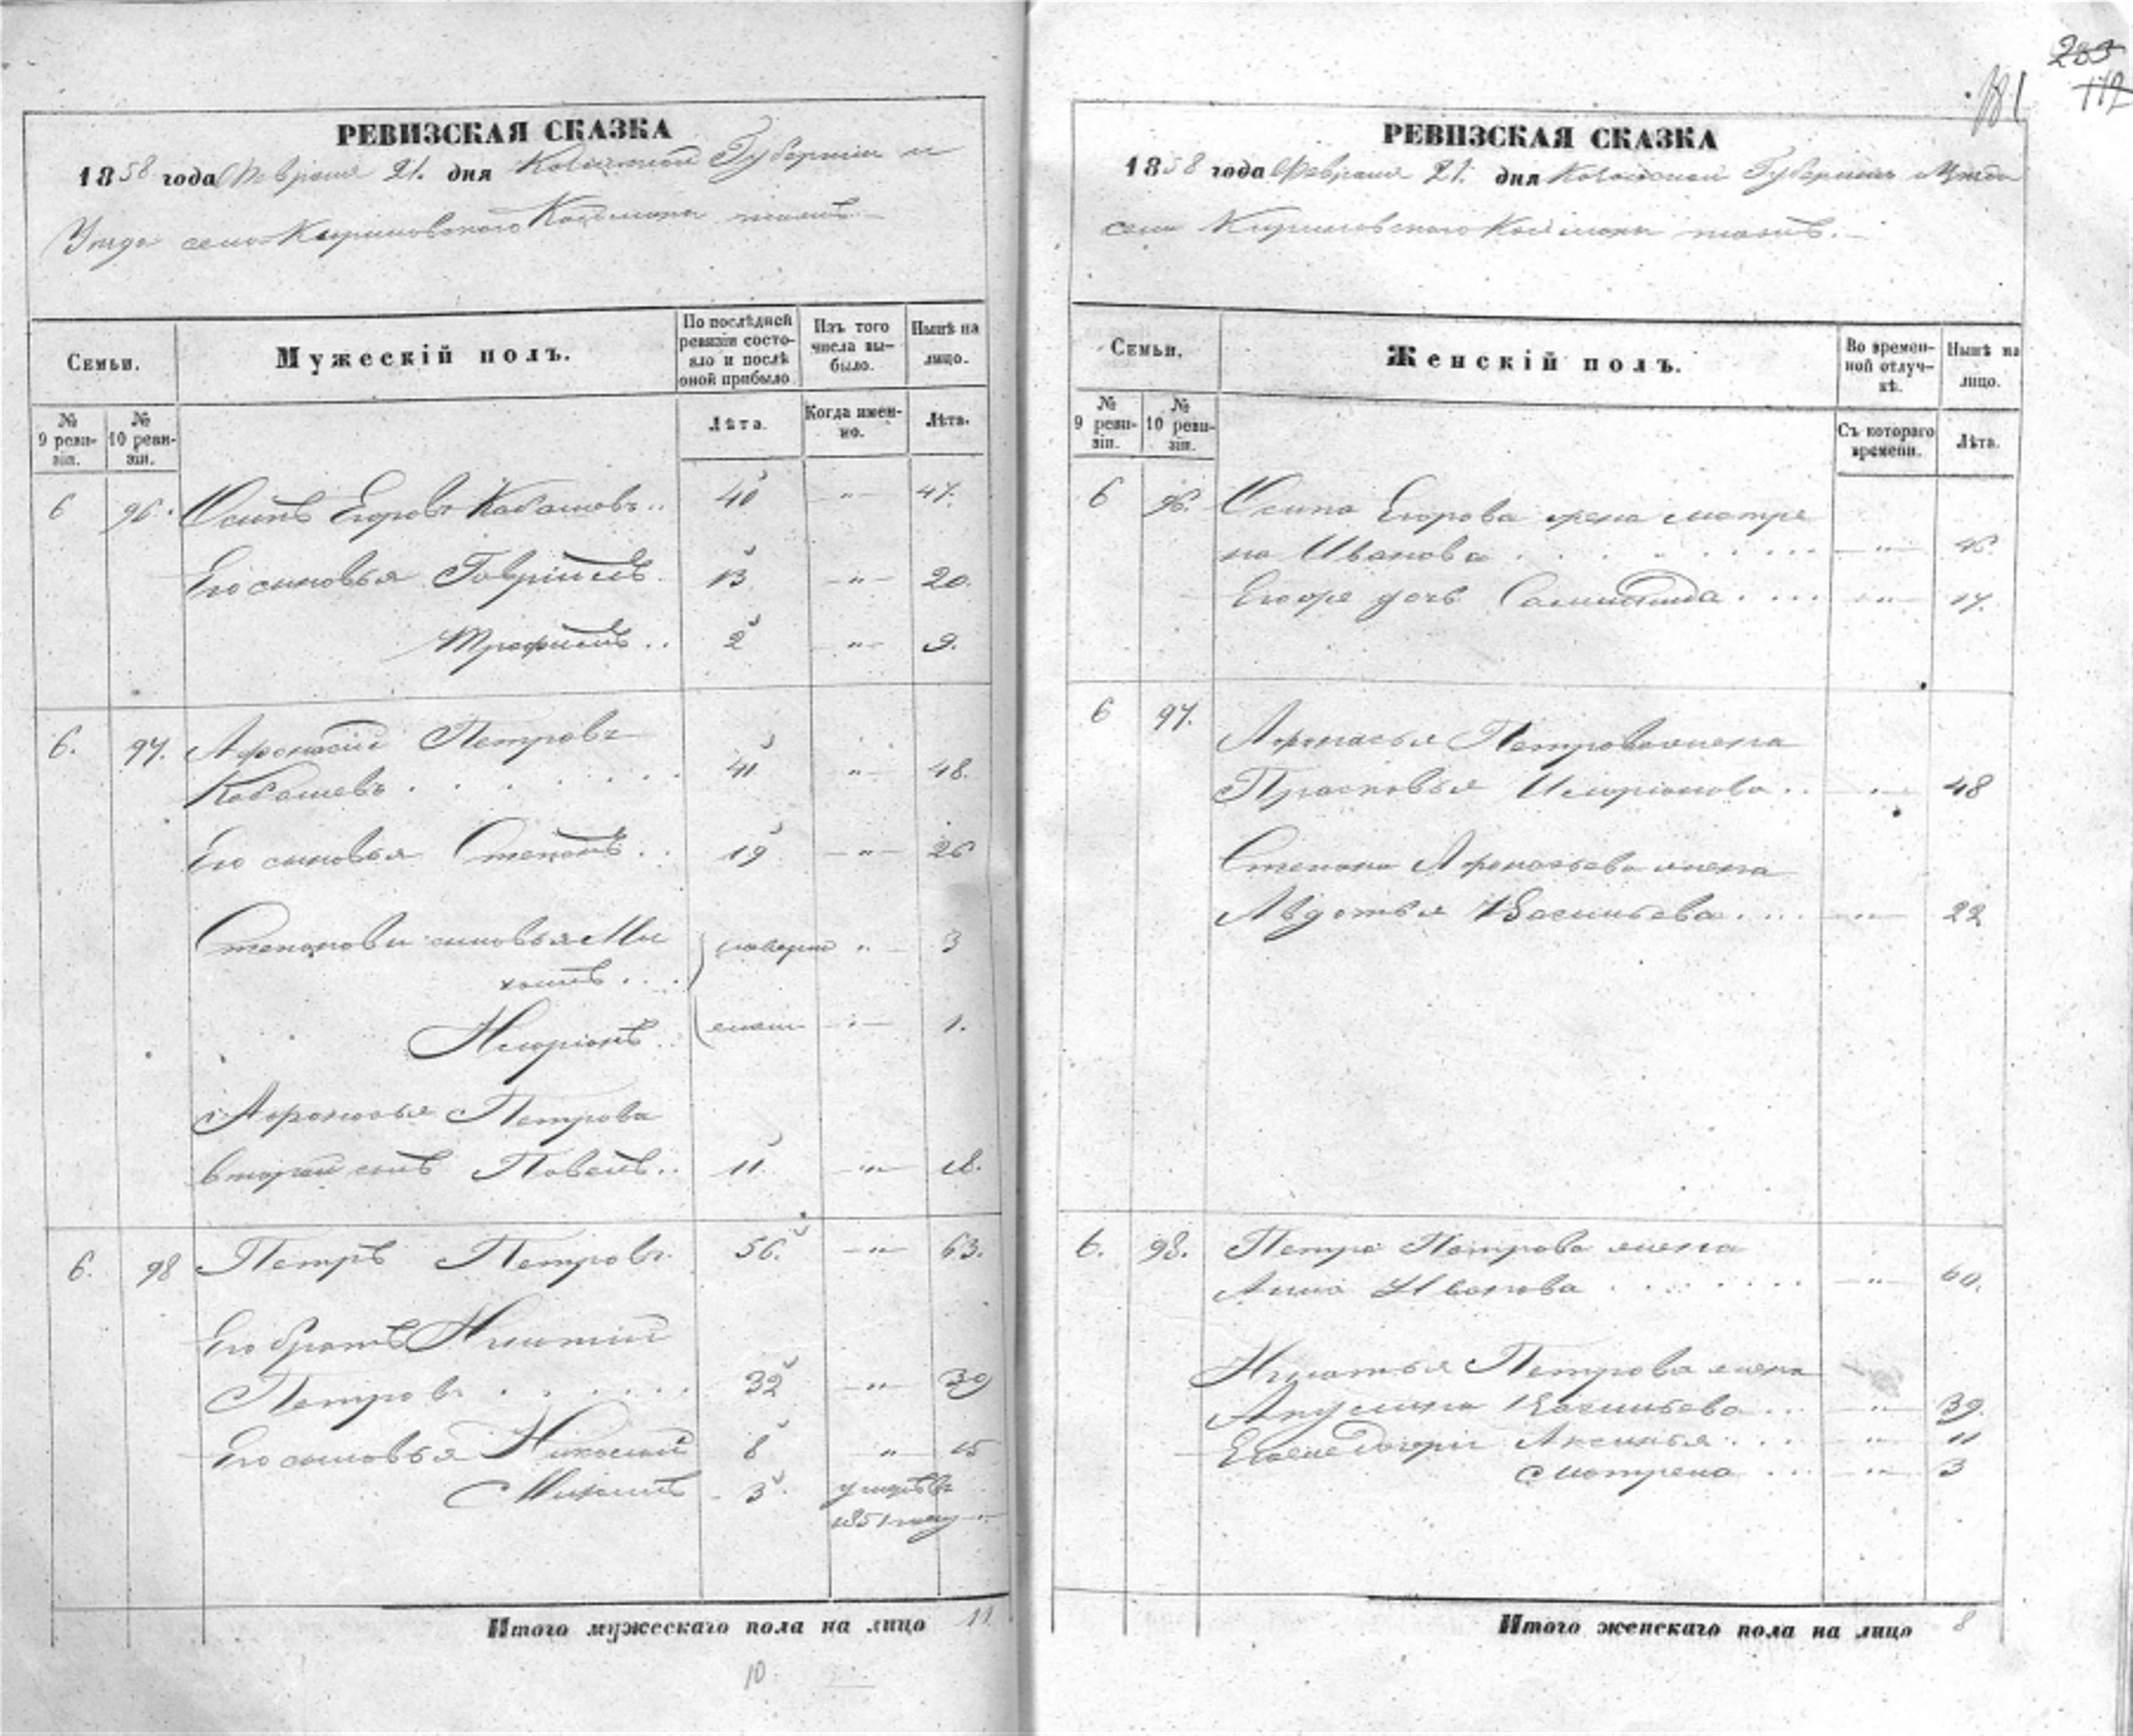 РЕВИЗСКАЯ СКАЗКА
1858 года Февраля 21. дня Казанской Губернии и
Уезда село
Семьи.
Мужескій полъ.
По послѣдней ревизіи состояло и послѣ оной прибыло.
Изъ того числа выбыло.
Нынѣ на лицо.
№ 9 ревизіи.
№ 10 ревизіи.
Лѣта.
Когда именно.
Лѣта.
6 96. Осипъ Егоровъ Кабашевъ.. 40 -"- 47.
Его сыновья Гаврiилъ. 13 -"- 20.
Трафимъ.. 2 -"- 9.
6. 97. Афонасiй Петровъ
Кабашевъ. . . . . . . 41 " 48.
Его сыновья Степанъ. . 19 -"- 26
Степановы сыновья Ми
хаилъ. . . " 3
Иларiонъ. 1.
Афонасья Петрова
второй сынъ Павелъ.. 11. -"- 18.
6. 98 Петръ Петровъ. 56. -"- 63.
Его братъ Игнатiй
Петровъ. . . . . . 32 -"- 39
Его сыновья Николай 8 " 15
Михаилъ - 3. умеръ въ
1851 году -"-
Итого мужескаго пола на лицо 11
10
283
112
181
РЕВИЗСКАЯ СКАЗКА
1858 года Февраля 21. дня Казанской Губернии и Уезда
села
Семьи.
Женскій полъ.
Во временной отлучкѣ.
Нынѣ на лицо.
№ 9 ревизіи.
№ 10 ревизіи.
Съ котораго времени.
Лѣта.
6 96. Осипа Егорова жена Матре
на Иванова . . . . . . . -"-
Егоре дочь . . . . -"- 17.
6 97. Афонасья Петрова жена
Прасковья Иларiонова . . -"- 48
Степана Афонасьева жена
Авдотья Васильева . . . . -"- 22
6. 98. Петра Петрова жена
Анна Иванова . . . . . . . -"- 60.
Игнатья Петрова жена
Акулина Васильева . . . -"- 39.
Его дочери Аксинья . . . -"- 11
Матрена . . . -"- 3
Итого женскаго пола на лицо 8